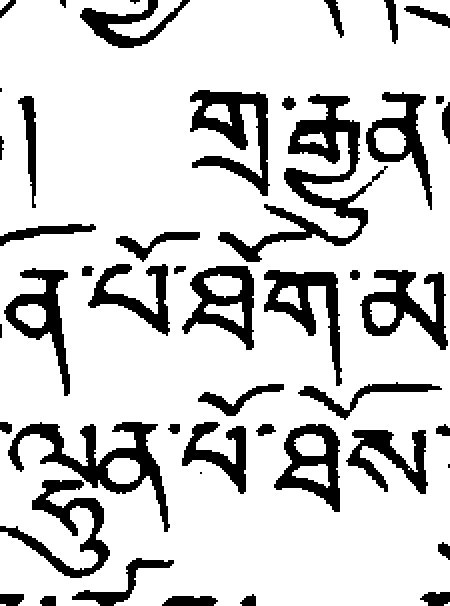 ། གྲ་རྒྱུན་
ན་པོ་ཐོག་མ
ལྷུན་པོ་ཐོས་